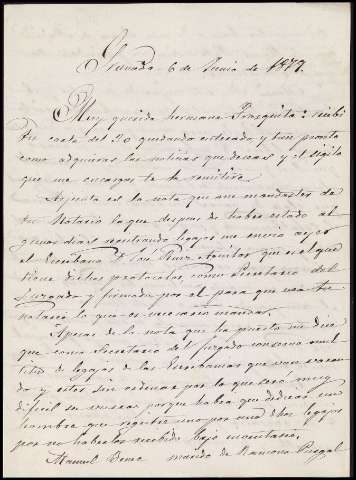 Granada 6 de Junio de 1879.
Muy querida hermana Frasquita: recibi
tu carta del 30 quedando enterado, y tan pronto
como adquiera las noticias que deseas y el sigilo
que me encargas te lo remitiré.
Adjunta es la nota que me mandastes de
tu Notario la que despues de haber estado al
gunos dias registrando legajos me envio ayer
el Escribano D. Perez Aguilar que es el que
tiene dichos protocolos, como Secretario del
Juzgado y firmada por el para que vea tu
notario lo que es necesario mandar.
Apesar de la nota que ha puesto me dice
que como Secretario del Juzgado conserva mul
titud de legajos de las Escribanias que van vacan
do y estos sin ordenar por lo que será muy
dificil su buscar, porque habra que dedicar un
hombre que registre uno por uno dhos legajos
por no haberlos recibido bajo inventario.
Manuel marido de Ramona